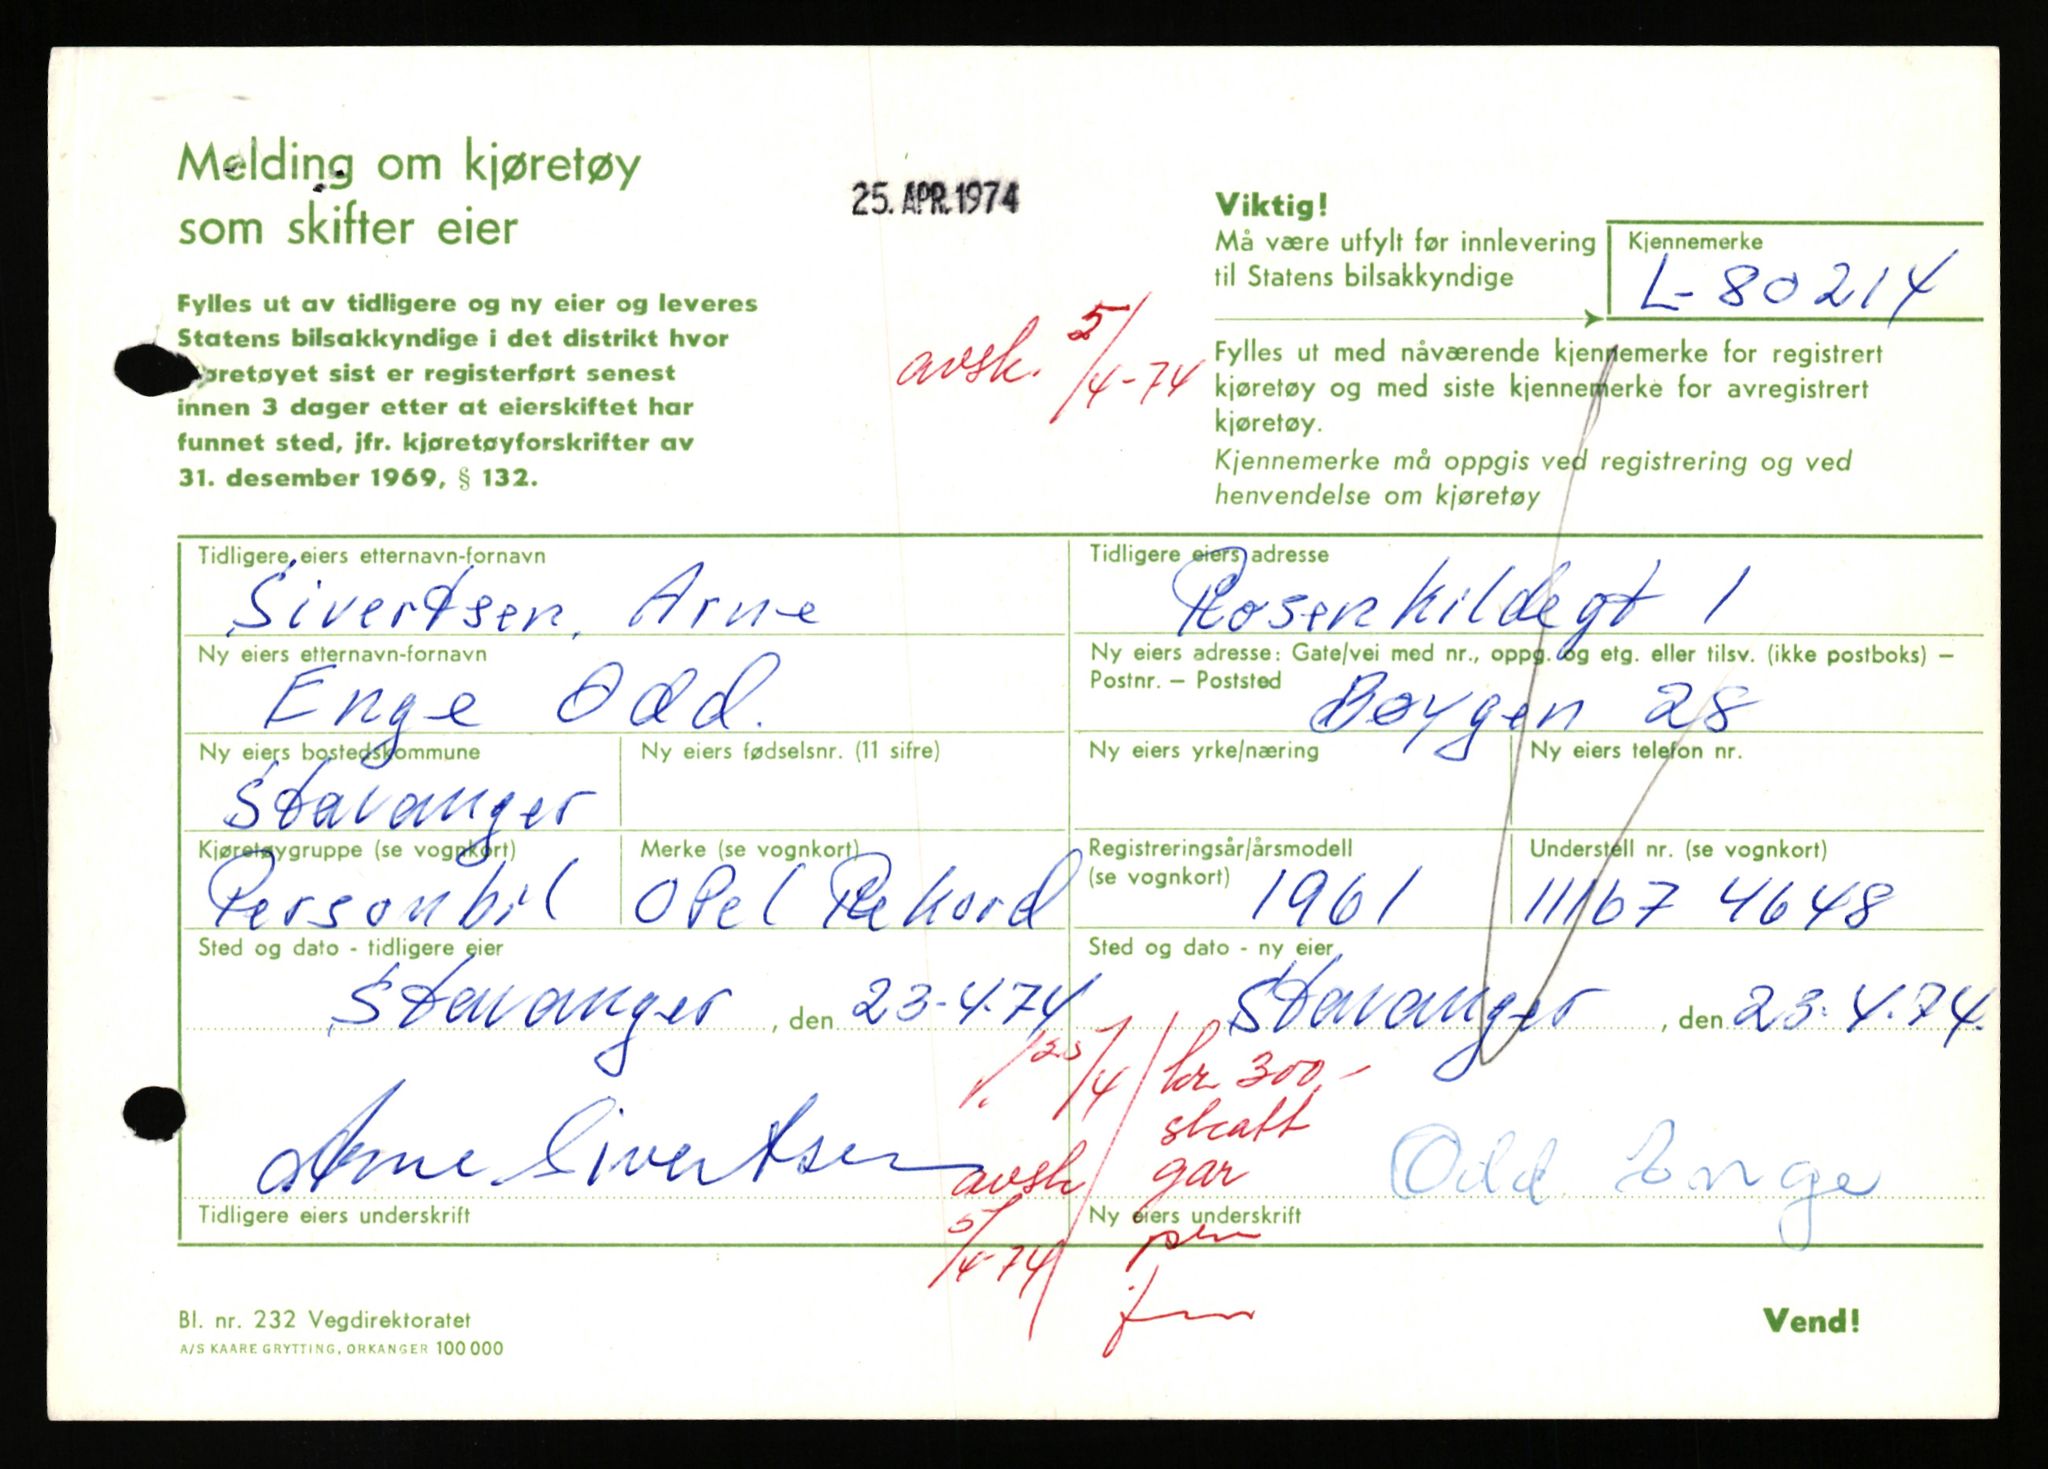 Melding om kjøretøy
som skifter eier
25. APR. 1974
Fylles ut av tidligere og ny eier og leveres
Statens bilsakkyndige i det distrikt hvor
øretøyet sist er registerført senest
innen 3 dager etter at eierskiftet har
funnet sted, jfr. kjøretøyforskrifter av
31. desember 1969, § 132.
avsk. 5/4-74
Viktig!
Må være utfylt før innlevering
til Statens bilsakkyndige
Kjennemerke
L-80214
Fylles ut med nåværende kjennemerke for registrert
kjøretøy og med siste kjennemerke for avregistrert
kjøretøy.
Kjennemerke må oppgis ved registrering og ved
henvendelse om kjøretøy
Tidligere eiers etternavn-fornavn
Sivertsen, Arne
Tidligere eiers adresse
Rosenkildegt 1
Ny eiers etternavn-fornavn
Enge Odd.
Ny eiers adresse: Gate/vei med nr., oppg. og etg. eller tilsv. (ikke postboks) –
Postnr. – Poststed
Bøygen 28
Ny eiers bostedskommune
Stavanger
Ny eiers fødselsnr. (11 sifre)
Ny eiers yrke/næring
Ny eiers telefon nr.
Kjøretøygruppe (se vognkort)
Personbil
Merke (se vognkort)
Opel Rekord
Registreringsår/årsmodell
(se vognkort)
1961
Understell nr. (se vognkort)
11167 4648
Sted og dato - tidligere eier
Stavanger, den 23-4.74
Sted og dato - ny eier
Stavanger, den 23.4.74.
25/4
kr 300,-
skatt
gar
Arne Sivertsen
avsk
5/4-74
Odd Enge
Tidligere eiers underskrift
Ny eiers underskrift
Bl. nr. 232 Vegdirektoratet
A/S KAARE GRYTTING, ORKANGER 100 000
Vend!